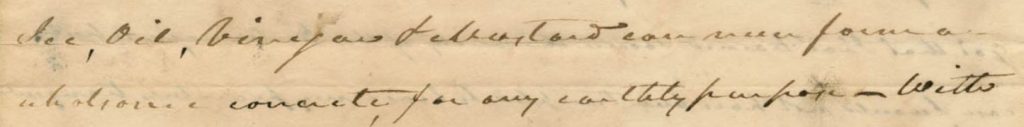 Ice, Oil, Vinegar & Mustard can never form a
wholsome concrete, for any earthly purpose — With